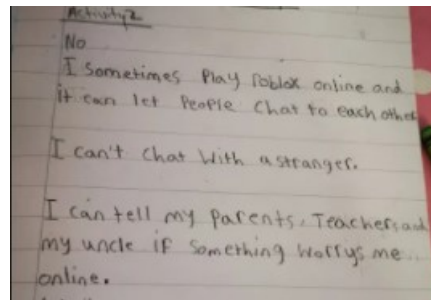 Activity 2
No
I sometimes Play roblox online and
it can let People Chat to each other
I can't Chat With a stranger.
I can tell my Parents, Teachers and
my uncle if Something Worrys me
online.